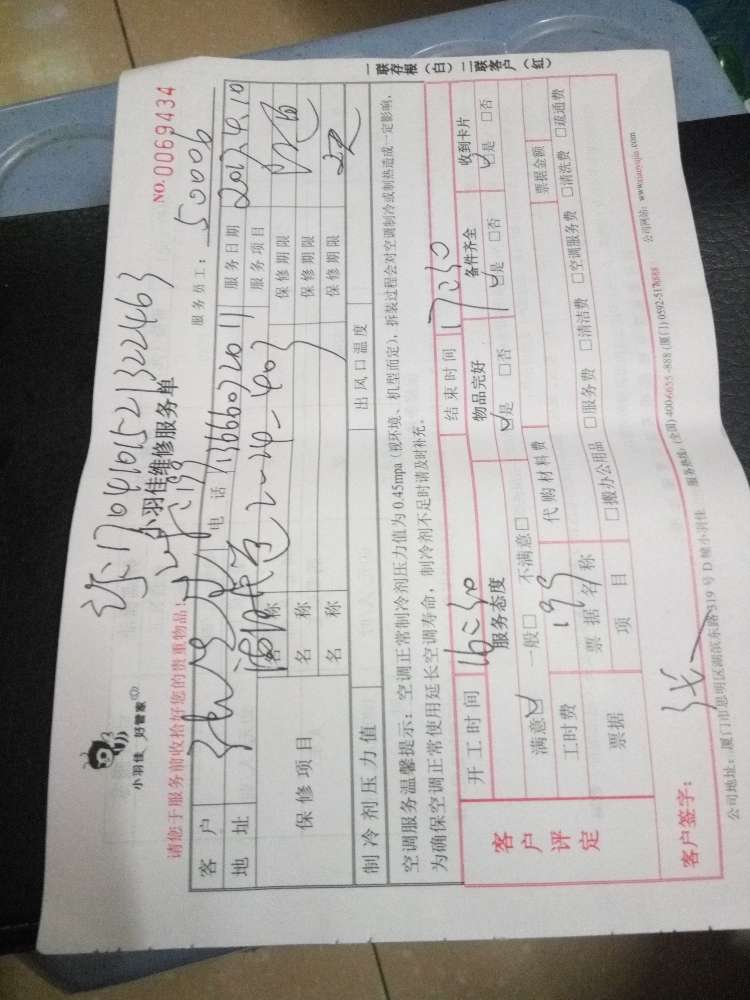 一联存根（白）二联客户（红）
小羽佳 好管家
小羽佳维修服务单
NO.0069434
请您于服务前收拾好您的贵重物品！
服务员工： 50006
客户
电话 13666072011
服务日期 2017.4.10
地址 2-24-403
服务项目
保修项目
名称 保修期限
名称 保修期限
名称 保修期限
制冷剂压力值 出风口温度
空调服务温馨提示：空调正常制冷剂压力值为0.45mpa（视环境、机型而定），拆装过程会对空调制冷或制热造成一定影响，
为确保空调正常使用延长空调寿命，制冷剂不足时请及时补充。
客户评定
开工时间 16:30 结束时间 17:30
服务态度 物品完好 备件齐全 收到卡片
满意☑ 一般□ 不满意□ ☑是 □否 ☑是 □否 ☑是 □否
工时费 199 代购材料费 票据金额
票据 票据名称
项目 □搬办公用品 □服务费 □清洁费 □空调服务费 □清洗费 □疏通费
客户签字： 张
公司地址：厦门市思明区湖滨东路319号D幢小羽佳 服务热线：(全国)400-6655-888 (厦门)0592-5178888 公司网站：www.xiaoyujia.com